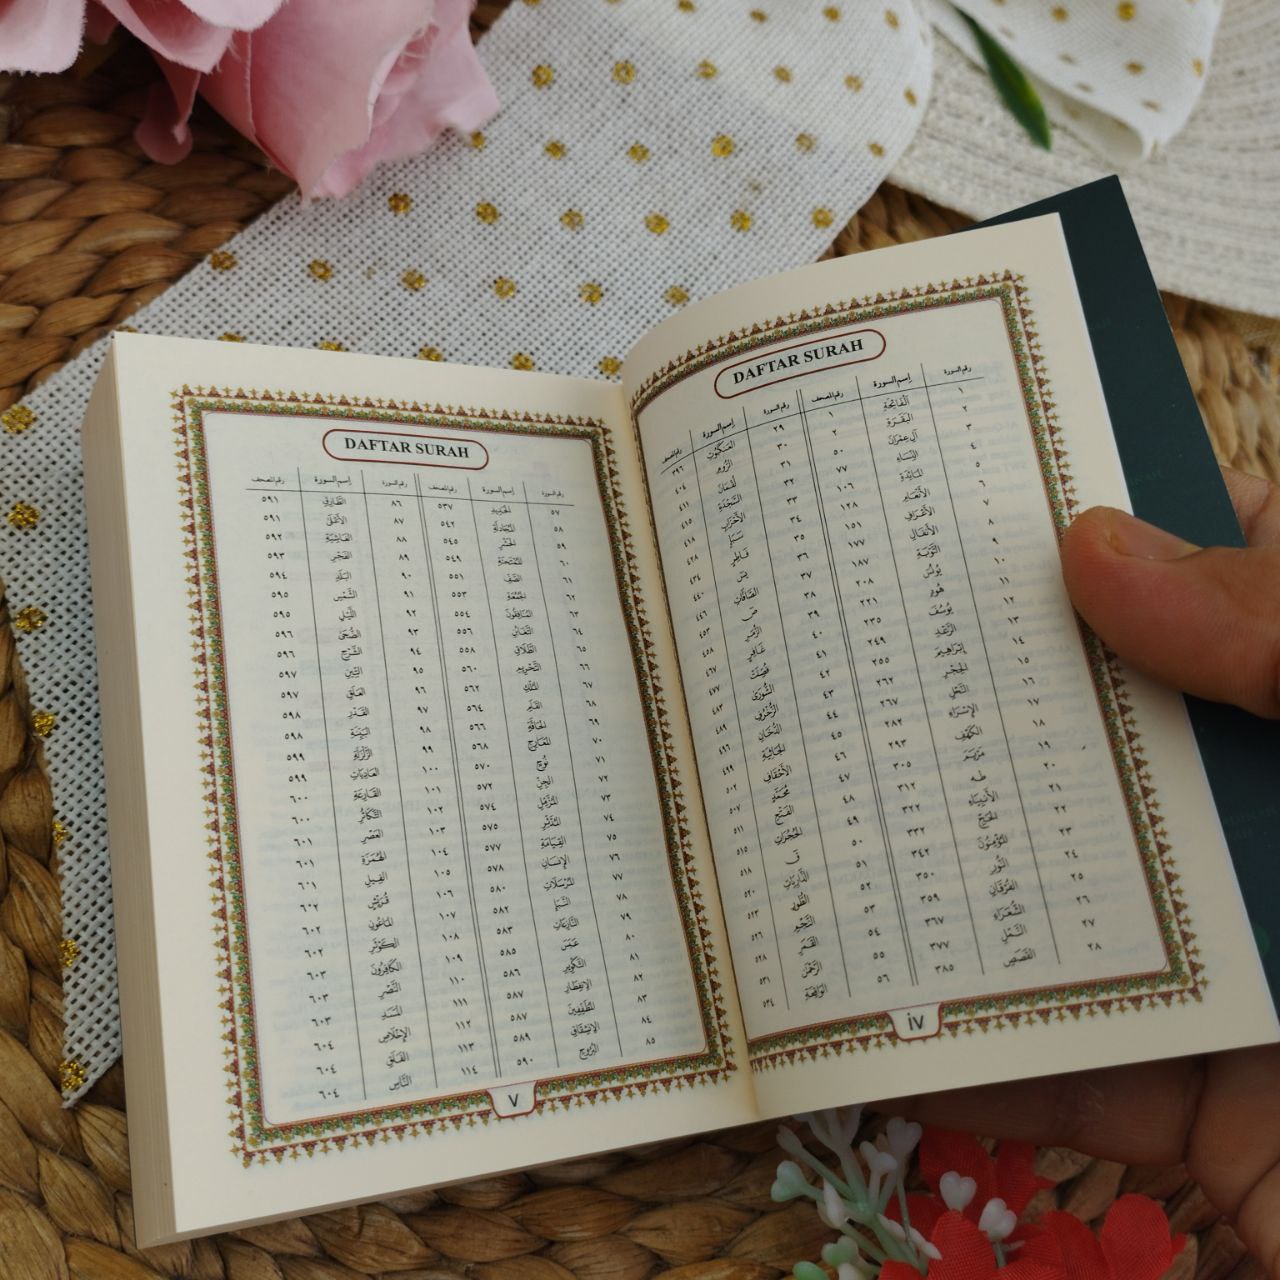 DAFTAR SURAH
رقم السورة إسم السورة رقم المصحف رقم السورة إسم السورة رقم المصحف
١ الْفَاتِحَة ١ ٢٩ العَنكَبُوت ٣٩٦
٢ البَقَرَة ٢ ٣٠ الرُّوم ٤٠٤
٣ آل عِمْرَان ٥٠ ٣١ لُقْمَان ٤١١
٤ النِّسَاء ٧٧ ٣٢ السَّجْدَة ٤١٥
٥ المَائِدَة ١٠٦ ٣٣ الأَحْزَاب ٤١٨
٦ الأَنْعَام ١٢٨ ٣٤ سَبَإ ٤٢٨
٧ الأَعْرَاف ١٥١ ٣٥ فَاطِر ٤٣٤
٨ الأَنْفَال ١٧٧ ٣٦ يس ٤٤٠
٩ التَّوْبَة ١٨٧ ٣٧ الصَّافَّات ٤٤٦
١٠ يُونُس ٢٠٨ ٣٨ ص ٤٥٣
١١ هُود ٢٢١ ٣٩ الزُّمَر ٤٥٨
١٢ يُوسُف ٢٣٥ ٤٠ غَافِر ٤٦٧
١٣ الرَّعْد ٢٤٩ ٤١ فُصِّلَتْ ٤٧٧
١٤ إِبْرَاهِيم ٢٥٥ ٤٢ الشُّورَى ٤٨٣
١٥ الحِجْر ٢٦٢ ٤٣ الزُّخْرُف ٤٨٩
١٦ النَّحْل ٢٦٧ ٤٤ الدُّخَان ٤٩٦
١٧ الإِسْرَاء ٢٨٢ ٤٥ الجَاثِيَة ٤٩٩
١٨ الكَهْف ٢٩٣ ٤٦ الأَحْقَاف ٥٠٢
١٩ مَرْيَم ٣٠٥ ٤٧ مُحَمَّد ٥٠٧
٢٠ طه ٣١٢ ٤٨ الفَتْح ٥١١
٢١ الأَنْبِيَاء ٣٢٢ ٤٩ الحُجُرَات ٥١٥
٢٢ الحَجّ ٣٣٢ ٥٠ ق ٥١٨
٢٣ المُؤْمِنُون ٣٤٢ ٥١ الذَّارِيَات ٥٢٠
٢٤ النُّور ٣٥٠ ٥٢ الطُّور ٥٢٣
٢٥ الفُرْقَان ٣٥٩ ٥٣ النَّجْم ٥٢٦
٢٦ الشُّعَرَاء ٣٦٧ ٥٤ القَمَر ٥٢٨
٢٧ النَّمْل ٣٧٧ ٥٥ الرَّحْمٰن ٥٣١
٢٨ القَصَص ٣٨٥ ٥٦ الوَاقِعَة ٥٣٤
iv
DAFTAR SURAH
رقم السورة إسم السورة رقم المصحف رقم السورة إسم السورة رقم المصحف
٥٧ الحَدِيد ٥٣٧ ٨٦ الطَّارِق ٥٩١
٥٨ المُجَادَلَة ٥٤٢ ٨٧ الأَعْلَى ٥٩١
٥٩ الحَشْر ٥٤٥ ٨٨ الغَاشِيَة ٥٩٢
٦٠ المُمْتَحَنَة ٥٤٩ ٨٩ الفَجْر ٥٩٣
٦١ الصَّف ٥٥١ ٩٠ البَلَد ٥٩٤
٦٢ الجُمُعَة ٥٥٣ ٩١ الشَّمْس ٥٩٥
٦٣ المُنَافِقُون ٥٥٤ ٩٢ اللَّيْل ٥٩٥
٦٤ التَّغَابُن ٥٥٦ ٩٣ الضُّحَى ٥٩٦
٦٥ الطَّلَاق ٥٥٨ ٩٤ الشَّرْح ٥٩٦
٦٦ التَّحْرِيم ٥٦٠ ٩٥ التِّين ٥٩٧
٦٧ المُلْك ٥٦٢ ٩٦ العَلَق ٥٩٧
٦٨ القَلَم ٥٦٤ ٩٧ القَدْر ٥٩٨
٦٩ الحَاقَّة ٥٦٦ ٩٨ البَيِّنَة ٥٩٨
٧٠ المَعَارِج ٥٦٨ ٩٩ الزَّلْزَلَة ٥٩٩
٧١ نُوح ٥٧٠ ١٠٠ العَادِيَات ٥٩٩
٧٢ الجِنّ ٥٧٢ ١٠١ القَارِعَة ٦٠٠
٧٣ المُزَّمِّل ٥٧٤ ١٠٢ التَّكَاثُر ٦٠٠
٧٤ المُدَّثِّر ٥٧٥ ١٠٣ العَصْر ٦٠١
٧٥ القِيَامَة ٥٧٧ ١٠٤ الهُمَزَة ٦٠١
٧٦ الإِنْسَان ٥٧٨ ١٠٥ الفِيل ٦٠١
٧٧ المُرْسَلَات ٥٨٠ ١٠٦ قُرَيْش ٦٠٢
٧٨ النَّبَأ ٥٨٢ ١٠٧ المَاعُون ٦٠٢
٧٩ النَّازِعَات ٥٨٣ ١٠٨ الكَوْثَر ٦٠٢
٨٠ عَبَسَ ٥٨٥ ١٠٩ الكَافِرُون ٦٠٣
٨١ التَّكْوِير ٥٨٦ ١١٠ النَّصْر ٦٠٣
٨٢ الإِنْفِطَار ٥٨٧ ١١١ المَسَد ٦٠٣
٨٣ المُطَفِّفِين ٥٨٧ ١١٢ الإِخْلَاص ٦٠٤
٨٤ الإِنْشِقَاق ٥٨٩ ١١٣ الفَلَق ٦٠٤
٨٥ البُرُوج ٥٩٠ ١١٤ النَّاس ٦٠٤
v